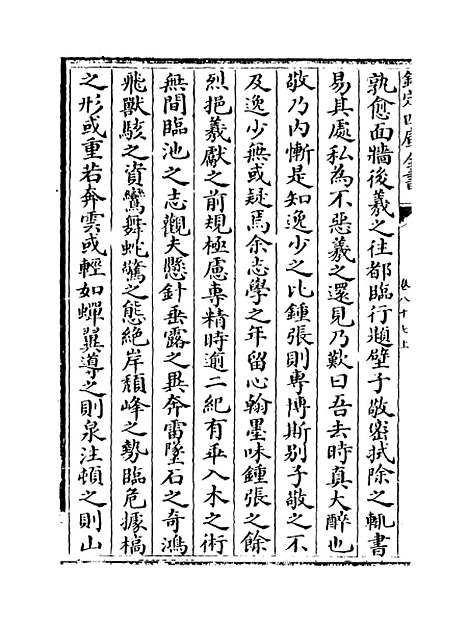 欽定四庫全書
卷八十七上
孰愈面牆後羲之往都臨行題壁子敬密拭除之輒書
易其處私為不惡羲之還見乃歎曰吾去時真大醉也
敬乃内慚是知逸少之比鍾張則專博斯别子敬之不
及逸少無或疑焉余志學之年留心翰墨味鍾張之餘
烈挹羲獻之前規極慮專精時逾二紀有乖入木之術
無間臨池之志觀夫懸針垂露之異奔雷墜石之奇鴻
飛獸駭之資鸞舞蛇驚之態絶岸頹峰之勢臨危據槁
之形或重若奔雲或輕如蟬翼導之則泉注頓之則山